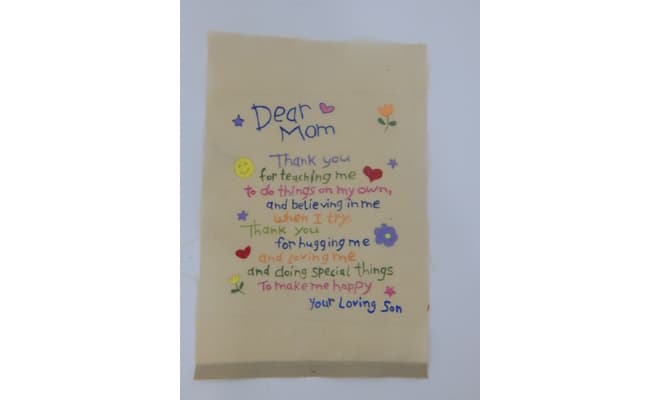 Dear
Mom
Thank you
for teaching me
to do things on my own,
and believing in me
when I try.
Thank you
for hugging me
and loving me
and doing special things
To make me happy
Your Loving Son